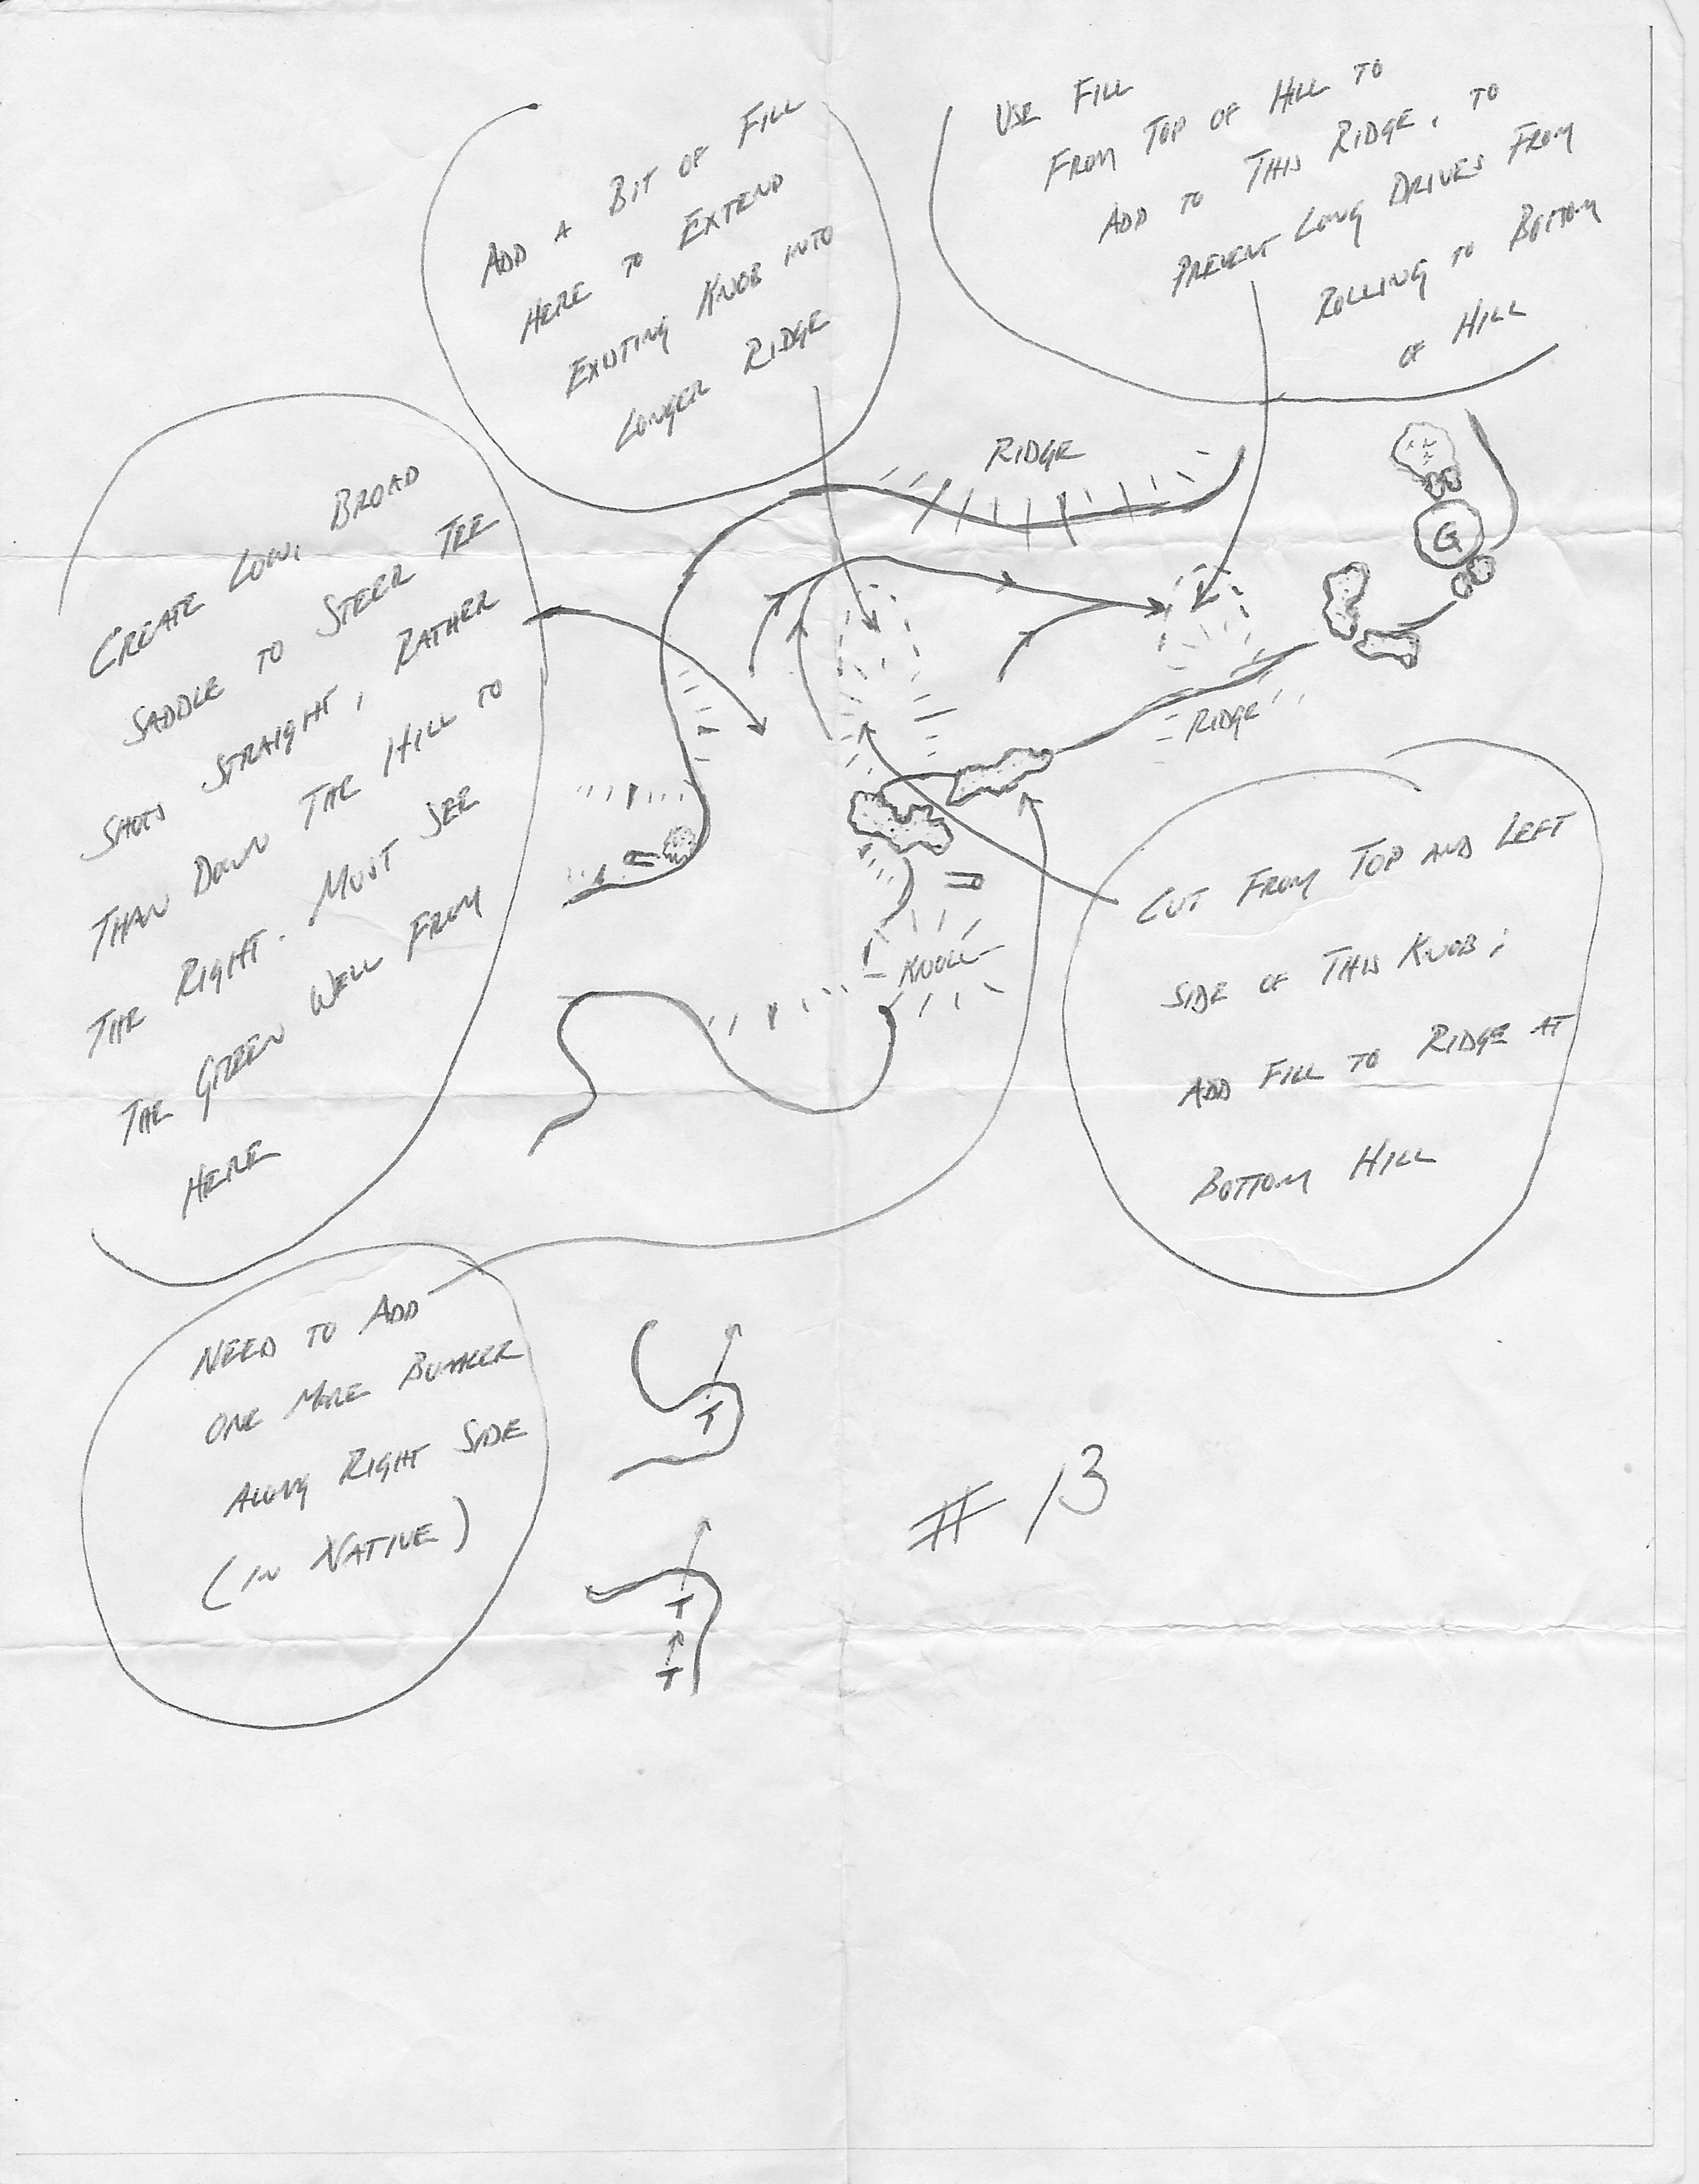 ADD A BIT OF FILL
HERE TO EXTEND
EXISTING KNOB INTO
LONGER RIDGE
USE FILL
FROM TOP OF HILL TO
ADD TO THIS RIDGE, TO
PREVENT LONG DRIVES FROM
ROLLING TO BOTTOM
OF HILL
CREATE LOW, BROAD
SADDLE TO STEER TEE
SHOTS STRAIGHT, RATHER
THAN DOWN THE HILL TO
THE RIGHT. MUST SEE
THE GREEN WELL FROM
HERE
RIDGE
G
RIDGE
KNOLL
CUT FROM TOP AND LEFT
SIDE OF THIS KNOB;
ADD FILL TO RIDGE AT
BOTTOM HILL
NEED TO ADD
ONE MORE BUNKER
ALONG RIGHT SIDE
(IN NATIVE)
T
T
T
# 13